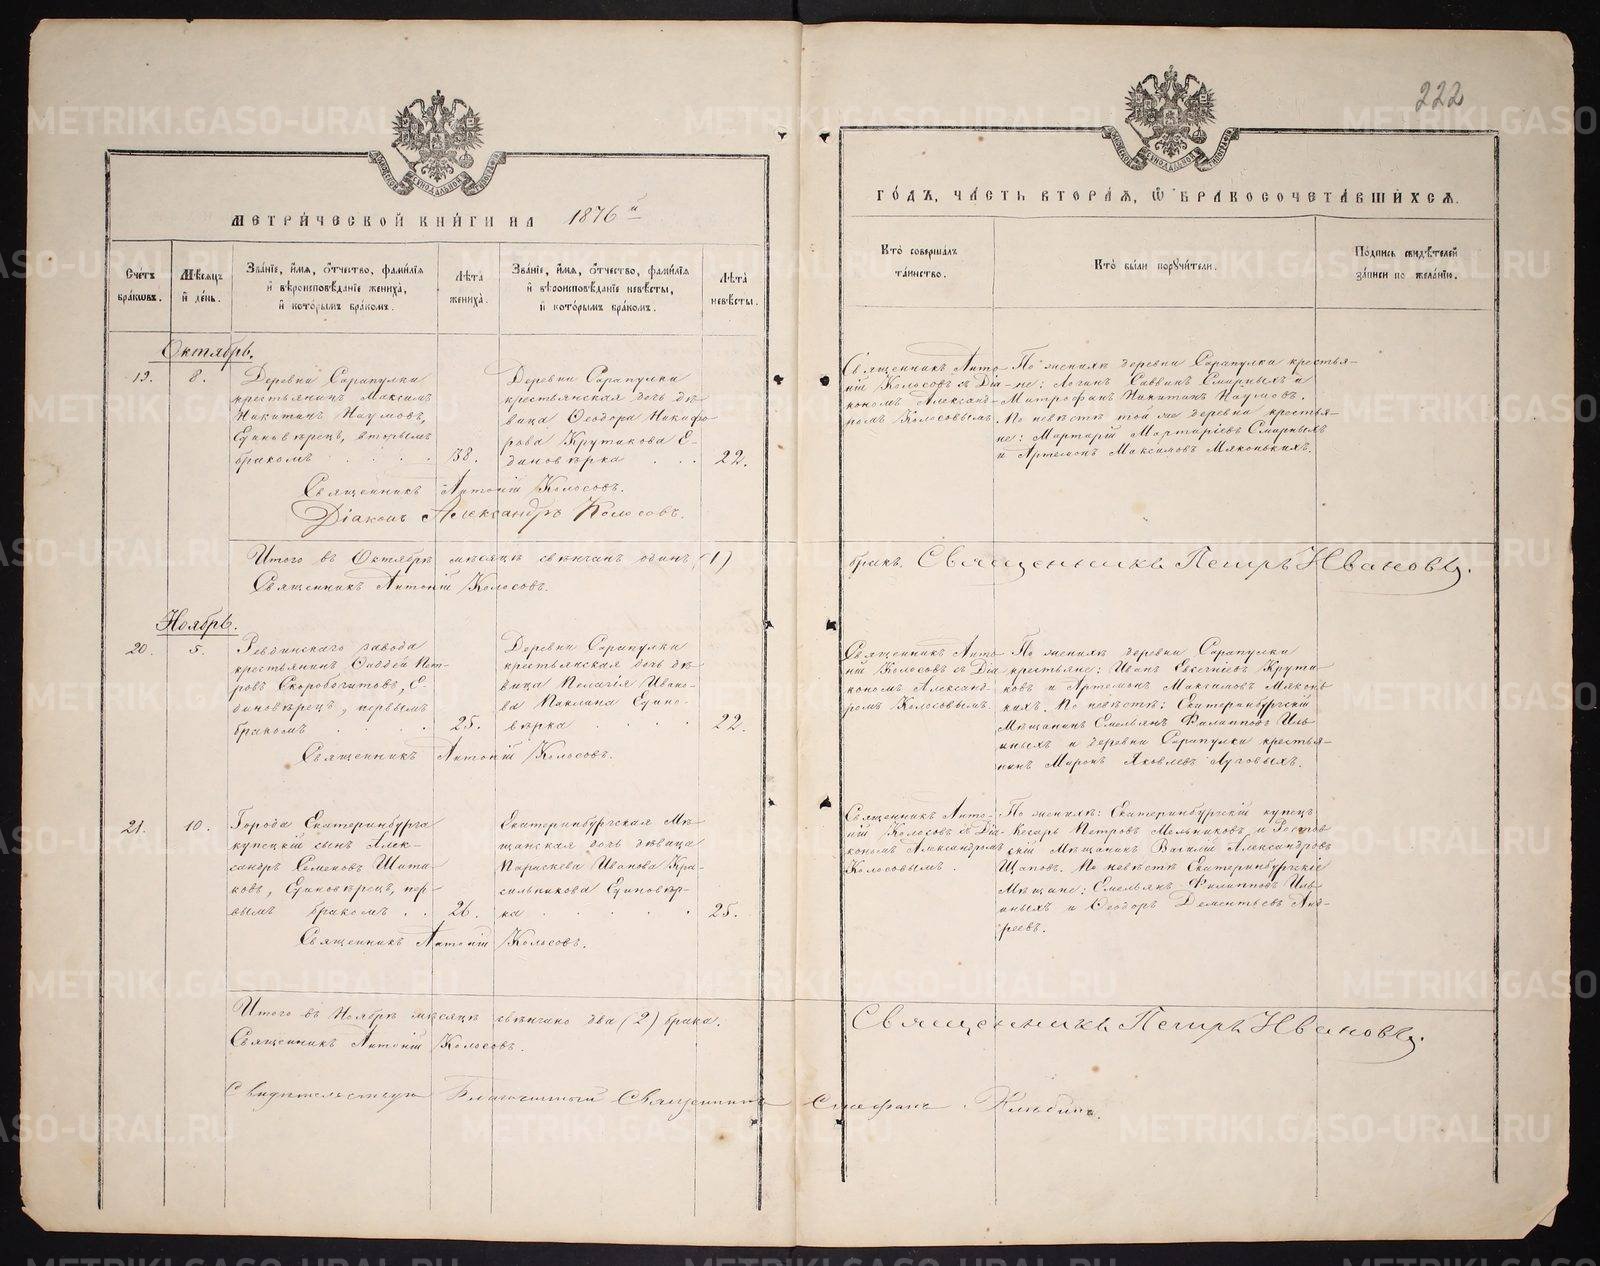 222
МЕТРИЧЕСКОЙ КНИГИ НА 1876 й
ГОДЪ, ЧАСТЬ ВТОРАЯ, Ѡ БРАКОСОЧЕТАВШИХСЯ.
Счетъ браковъ.
Мѣсяцъ и день.
Званіе, имя, отчество, фамилія и вѣроисповѣданіе жениха, и которымъ бракомъ.
Лѣта жениха.
Званіе, имя, отчество, фамилія и вѣроисповѣданіе невѣсты, и которымъ бракомъ.
Лѣта невѣсты.
Кто совершалъ таинство.
Кто были поручители.
Подпись свидѣтелей записи по желанію.
Октябрь.
19.
8.
Деревни Сарапулка
крестьянинъ Максимъ
Никитинъ Наумовъ,
Единовѣрецъ, вторымъ
бракомъ
38.
Деревни Сарапулка
крестьянская дочь дѣ-
вица Ѳеодора Никифо
рова Крутикова Е-
диновѣрка
22.
Священникъ Анто-
ній Колосовъ съ Діа-
кономъ Александ-
ромъ Колосовымъ.
По женихѣ деревни Сарапулка крестья-
не: Логинъ Саввинъ Смирныхъ и
Митрофанъ Никитинъ Наумовъ.
По невѣстѣ той же деревни крестья-
не: Мартирій Мартиріевъ Смирныхъ
и Артемонъ Максимовъ Мяконькихъ.
Священникъ Антоній Колосовъ.
Діаконъ Александръ Колосовъ.
Итого въ Октябрѣ мѣсяцѣ свѣнчанъ одинъ (1)
бракъ. Священникъ Петръ Ивановъ.
Священникъ Антоній Колосовъ.
Ноябрь.
20.
5.
Ревдинскаго завода
крестьянинъ Ѳаддей Пет-
ровъ Скоробогатовъ, Е-
диновѣрецъ, первымъ
бракомъ
25.
Деревни Сарапулки
крестьянская дочь дѣ-
вица Пелагія Ивано-
ва Паклина Едино-
вѣрка
22.
Священникъ Анто-
ній Колосовъ съ Діа-
кономъ Александ-
ромъ Колосовымъ.
По женихѣ деревни Сарапулки
крестьяне: Иванъ Евгеніевъ Крути-
ковъ и Артемонъ Максимовъ Мяконь
кихъ. По невѣстѣ: Екатеринбургскій
Мѣщанинъ Емельянъ Филипповъ Иль-
иныхъ и деревни Сарапулки крестья-
нинъ Миронъ Яковлевъ Луговыхъ.
Священникъ Антоній Колосовъ.
21.
10.
Города Екатеринбурга
купецкій сынъ Алек-
сандръ Семеновъ Шита-
ковъ, Единовѣрецъ, пер-
вымъ бракомъ
26.
Екатеринбургская Мѣ-
щанская дочь дѣвица
Параскева Иванова Кра-
сильникова Единовѣр-
ка
25.
Священникъ Анто-
ній Колосовъ съ Діа-
кономъ Александромъ
Колосовымъ.
По женихѣ: Екатеринбургскій купецъ
Петровъ Мельниковъ и Ростов-
скій Мѣщанинъ Василій Александровъ
Щаповъ. По невѣстѣ Екатеринбургскіе
Мѣщане: Емельянъ Филипповъ Иль-
иныхъ и Ѳеодоръ Дементьевъ Анд-
реевъ.
Священникъ Антоній Колосовъ.
Итого въ Ноябрѣ мѣсяцѣ свѣнчано два (2) брака.
Священникъ Петръ Ивановъ.
Священникъ Антоній Колосовъ.
Свидѣтельствую Благочинный Священникъ Стефанъ
METRIKI.GASO-URAL.RU